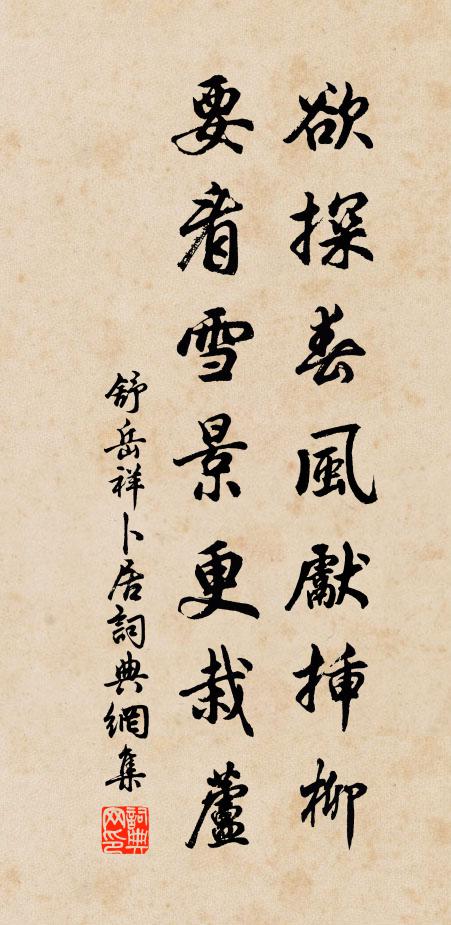 欲探春風獻插柳
要看雪景更栽蘆
舒岳祥卜居詞典網集
詞典
网印